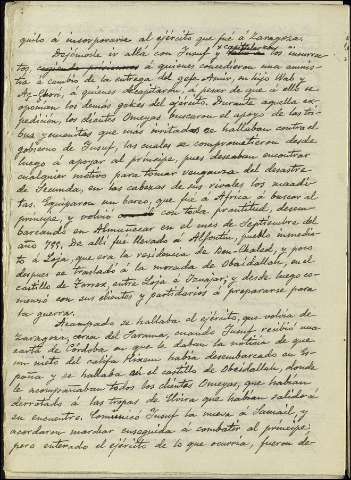 guió á incorporarse al ejército que fué á Zaragoza.
Dejóronle ir allá con Jusuf y capitularon los insurrec-
tos, á quienes concedieron una amnis-
tía á cambio de la entrega del gefe Amir, su hijo Wab y
Az-Zhori, á quienes decapitaron, á pesar de que á ello se
oponian los demás gefes del ejército. Durante aquella ex-
pedición, los clientes Omeyas buscaron el apoyo de las tri-
bus yemenitas que mas irritadas se hallaban contra el
gobierno de Jusuf, las cuales se comprometieron desde
luego á apoyar al príncipe, pues deseaban encontrar
cualquier motivo para tomar venganza del desastre
de Secunda, en las cabezas de sus rivales los maadi-
tas. Equiparon un barco, que fué á Africa á buscar al
príncipe, y volvió con toda prontitud, desem-
barcando en Almuñecar en el mes de Septiembre del
año 755. De allí fue llevado á Alfontin, pueblo inmedia-
to á Loja, que era la residencia de Ben-Chaled, y poco
despues se trasladó á la morada de Obaidallah, en el
castillo de Torrox, entre Loja é Iznajar, y desde luego co-
menzó con sus clientes y partidarios á prepararse para
la guerra.
Acampado se hallaba el ejército, que volvia de
Zaragoza, cerca del Jarama, cuando Jusuf recibió una
carta de Córdoba, en que le daban la noticia de que
un nieto del califa Hixem habia desembarcado en Es-
paña y se hallaba en el castillo de Obeidallah, donde
le acompañaban todos los clientes Omeyas, que habian
derrotado á las tropas de Elvira que habian salido á
su encuentro. Comunicó Jusuf la nueva á Samail, y
acordaron marchar enseguida á combatir al príncipe;
pero enterado el ejército de lo que ocurría, fueron de-